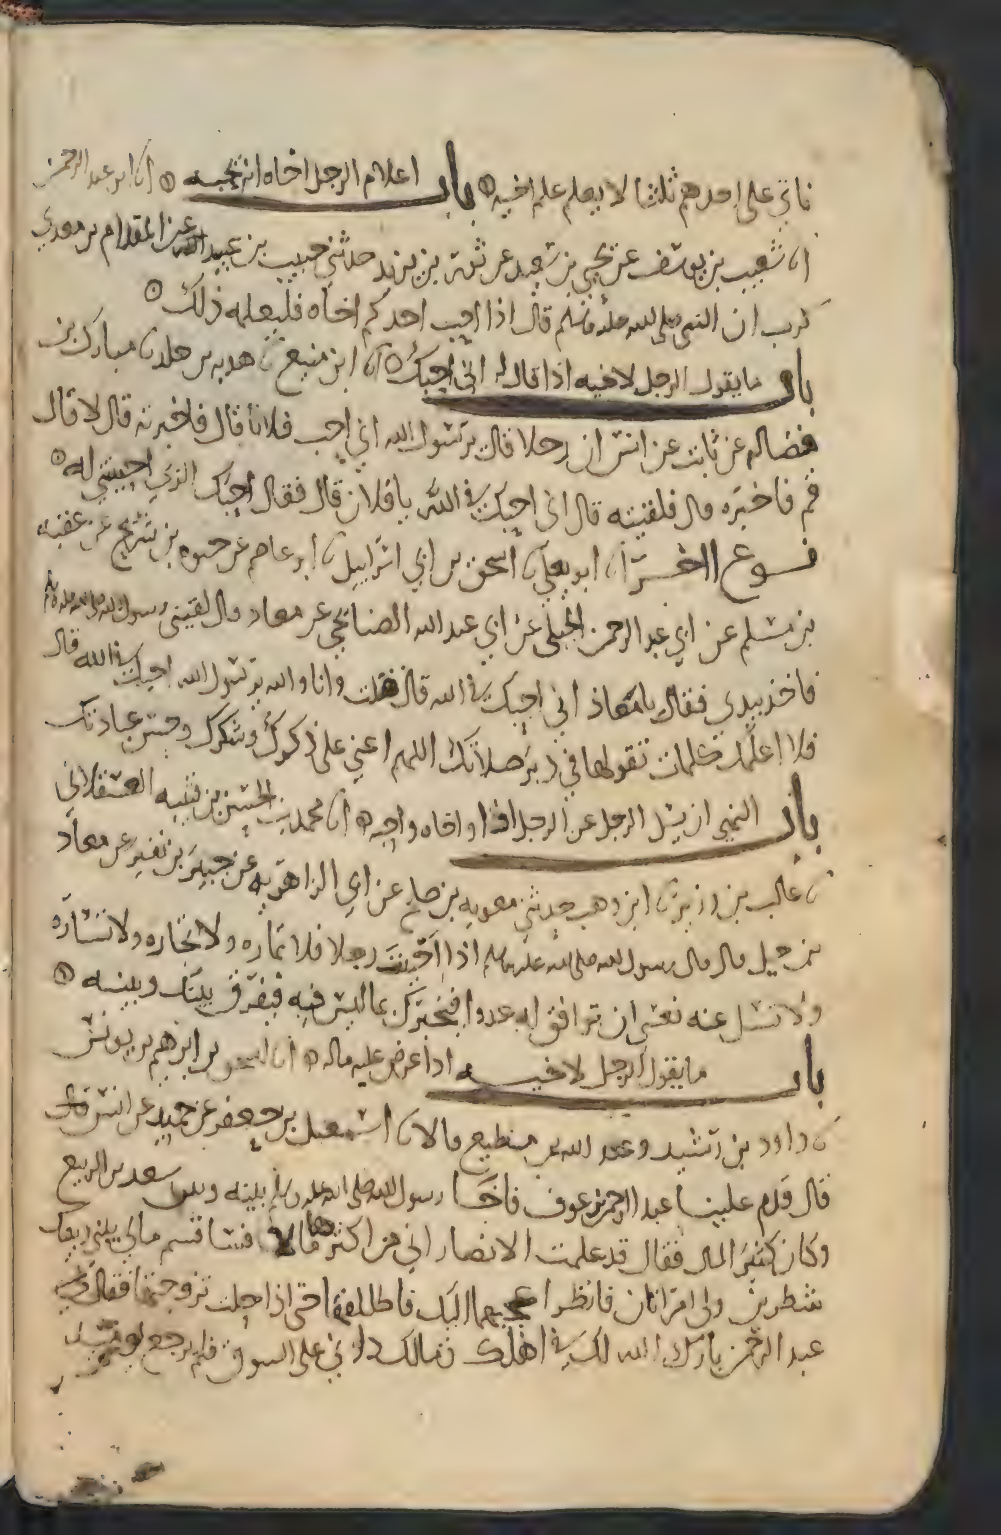 فاتي على احدهم ثلثا لا يعلم علم اخيه باب اعلام الرجل اخاه انه يحبه انا ابو عبد الرحمن
انا شعيب بن يوسف عن يحيى بن سعيد عن ثور بن يزيد حدثني حبيب بن عبيد الله عن المقدام بن معدي
كرب ان النبي صلى الله عليه وسلم قال اذا احب احدكم اخاه فليعلمه ذلك
باب ما يقول الرجل لاخيه اذا قال له اني احبك انا ابن منيع نا هدبه بن خلد نا مبارك بن
فضاله عن ثابت عن انس ان رجلا قال يرسول الله اني احب فلانا قال فاخبرته قال لا قال
قم فاخبره قال فلقيته قال اني احبك في الله يا فلان قال فقال احبك الذي احببتني له
نوع اخر انا ابو يعلى نا اسحق بن ابي اسرايل نا ابو عاصم عن حيوه بن شريح عن عقبه
بن مسلم عن ابي عبد الرحمن الحبلي عن ابي عبد الله الصنابحي عن معاذ قال لقيني رسول الله صلى الله عليه وسلم
فاخذ بيدي فقال يا معاذ اني احبك في الله قال قلت وانا والله يرسول الله احبك في الله قال
فلا اعلمك كلمات تقولها في دبر صلاتك اللهم اعني على ذكرك وشكرك وحسن عبادتك
باب النهي ان يسل الرجل عن الرجل اذا واخاه واحبه انا محمد بن الحسن بن قتيبه العسقلاني
نا غالب بن وزير نا ابن وهب حدثني معويه بن صالح عن ابي الزاهريه عن جبير بن نفير عن معاذ
بن جبل قال قال رسول الله صلى الله عليه وسلم اذا احببت رجلا فلا تماره ولا تجاره ولا تشاره
ولا تسل عنه فعسى ان توافق له عدوا فيخبرك بما ليس فيه فيفرق بينك وبينه
باب ما يقول الرجل لاخيه اذا عرض عليه ماله انا اسحق بن ابرهيم بن يونس
نا داود بن رشيد وعبد الله بن مطيع قالا نا اسمعيل بن جعفر عن حميد عن انس
قال قدم علينا عبد الرحمن بن عوف فاخا رسول الله صلى الله عليه وسلم بينه وبين سعد بن الربيع
وكان كثير المال فقال قد علمت الانصار اني من اكثرها مالا فساقسم مالي بيني وبينك
شطرين ولي امراتان فانظر اعجبهما اليك فاطلقها حتى اذا حلت تزوجتها فقال
عبد الرحمن بارك الله لك في اهلك ومالك دلوني على السوق فلم يرجع يوميذ